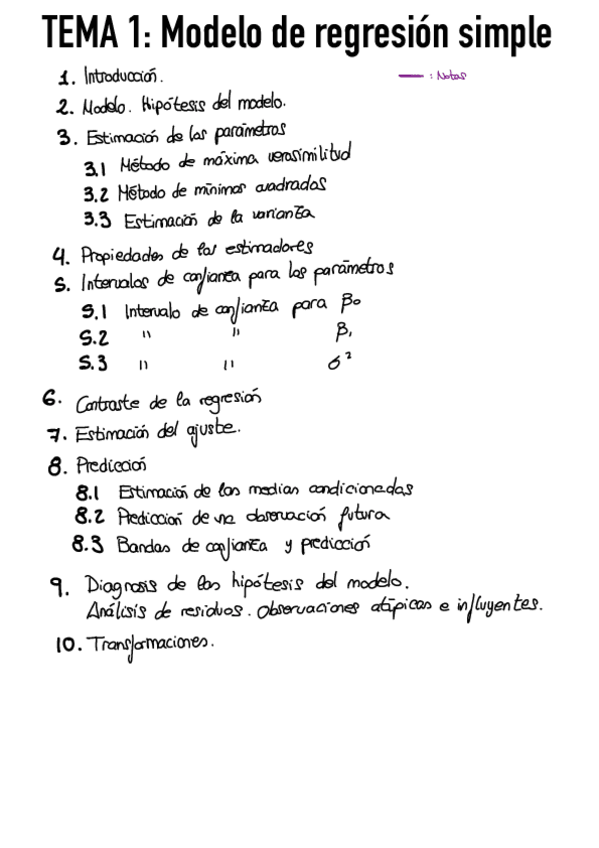 TEMA 1: Modelo de regresión simple
1. Introducción.
— : Notas
2. Modelo. Hipótesis del modelo.
3. Estimación de los parámetros
3.1 Método de máxima verosimilitud
3.2 Método de mínimos cuadrados
3.3 Estimación de la varianza
4. Propiedades de los estimadores
5. Intervalos de confianza para los parámetros
5.1 Intervalo de confianza para β₀
5.2 " " β₁
5.3 " " σ²
6. Contraste de la regresión
7. Estimación del ajuste.
8. Predicción
8.1 Estimación de las medias condicionadas
8.2 Predicción de una observación futura
8.3 Bandas de confianza y predicción
9. Diagnosis de las hipótesis del modelo.
Análisis de residuos. Observaciones atípicas e influyentes.
10. Transformaciones.